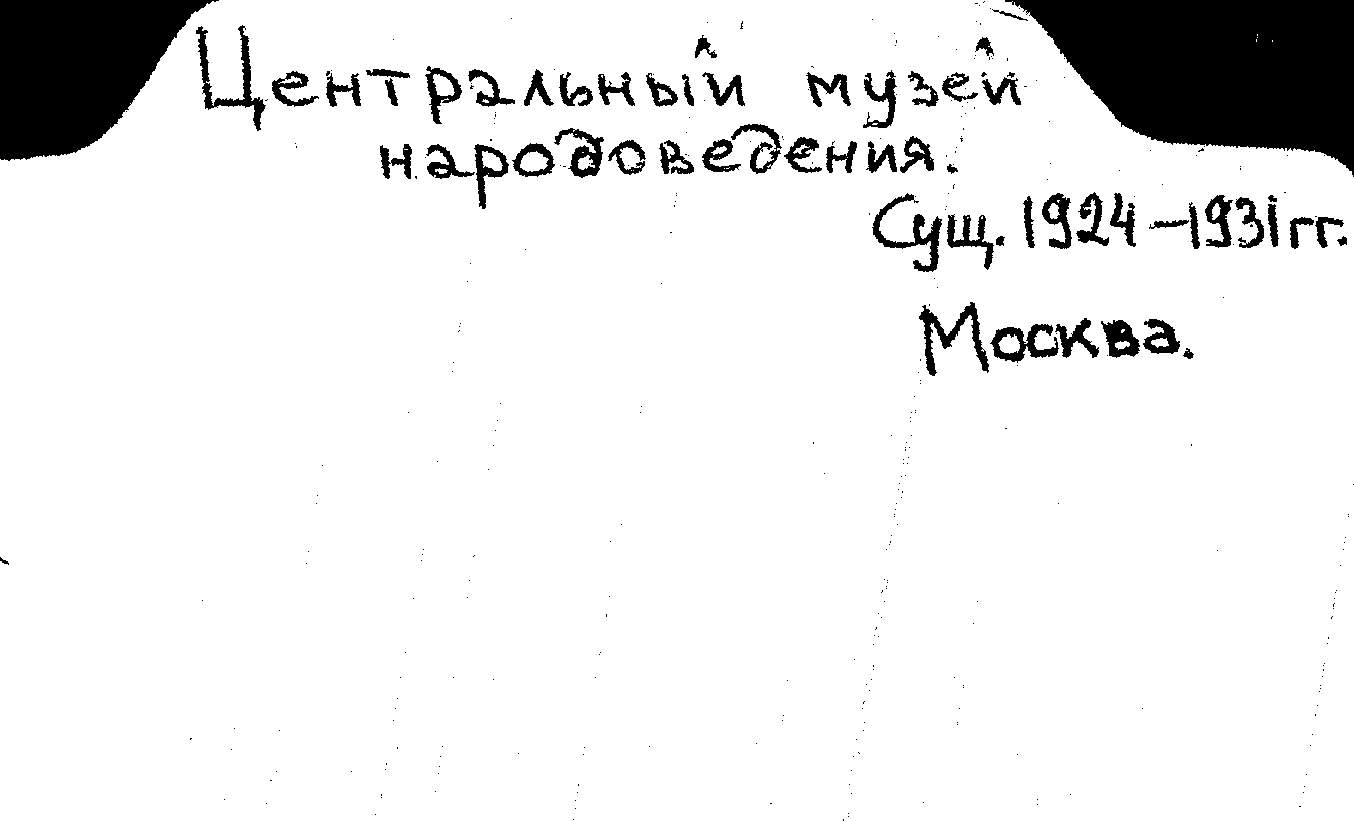 Центральный музей
народоведения.
Сущ. 1924-1931гг.
Москва.